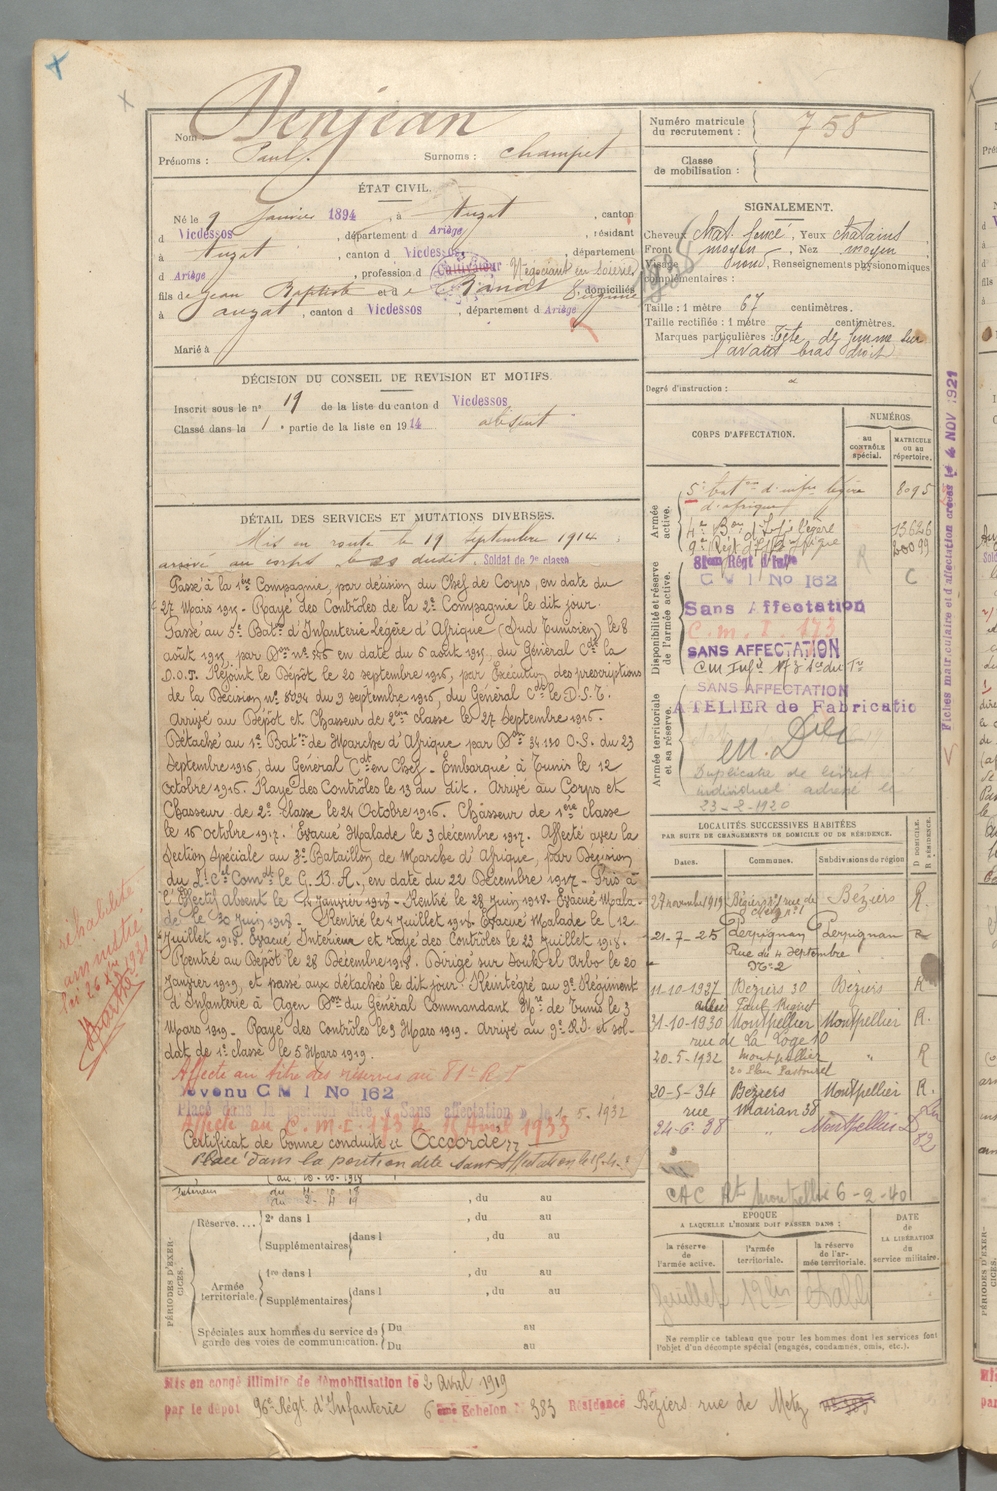 Nom : Denjean
Prénoms : Paul. Surnoms : champet
ÉTAT CIVIL.
Né le 9 Janvier 1894, à Auzat, canton
d Vicdessos, département d Ariège, résidant
à Auzat, canton d Vicdessos, département
d Ariège, profession d Cultivateur Négociant en Soieries
fils de Jean Baptiste et de Eugénie, domiciliés
à auzat, canton d Vicdessos, département d Ariège
Marié à
DÉCISION DU CONSEIL DE REVISION ET MOTIFS.
Inscrit sous le n° 19 de la liste du canton d Vicdessos
Classé dans la 1 e partie de la liste en 1914 absent
DÉTAIL DES SERVICES ET MUTATIONS DIVERSES.
Mis en route le 19 septembre 1914.
arrivé au corps le dudit. Soldat de 2e classe
Passé à la 1ère Compagnie, par décision du Chef de Corps, en date du
27 Mars 1915 - Rayé des Contrôles de la 2e Compagnie le dit jour.
Passé au 5e Baton d'Infanterie Légère d'Afrique (Sud Tunisien) le 8
août 1915, par Don n° en date du 5 août 1915, du Général Cdt la
D.O.T. Rejoint le Dépôt le 20 septembre 1916, par Exécution des prescriptions
de la Décision n° 8294 du 9 septembre 1916, du Général Cdt le D.S.T.
Arrivé au Dépôt et Chasseur de 2ème classe le 27 Septembre 1916.
Détaché au 1er Baton de Marche d'Afrique par Don 34.130 O.S. du 23
Septembre 1916, du Général Cdt en Chef - Embarqué à Tunis le 12
Octobre 1916. Rayé des Contrôles le 13 du dit. Arrivé au Corps et
Chasseur de 2e Classe le 24 Octobre 1916. Chasseur de 1ère classe
le 16 octobre 1917. Evacué Malade le 3 décembre 1917. Affecté avec la
Section Spéciale au 3e Bataillon de Marche d'Afrique, par Décision
du Lt Cel Comdt le G.B.A., en date du 22 Décembre 1917 - Pris à
l'Effectif absent le 4 janvier 1918 - Rentré le 28 juin 1918. Evacué Mala-
de le 30 Juin 1918. - Rentré le 4 Juillet 1918. Evacué Malade le (12
Juillet 1918. Evacué Intérieur et rayé des Contrôles le 23 Juillet 1918.
Rentré au Dépôt le 28 Décembre 1918. Dirigé sur Souk el Arba le 20
Janvier 1919, et passé aux détachés le dit jour. Réintégré au 9e Régiment
d'Infanterie à Agen Don du Général Commandant Mre de Tunis le 3
Mars 1919 - Rayé des Contrôles le 3 Mars 1919. Arrivé au 9e R.I. et sol-
dat de 1e classe le 5 Mars 1919.
Affecté au titre des réserves au 81e R.I
devenu C M I No 162
Placé dans la position dite « Sans affectation » le 1. 5. 1932
Affecté au C.m.I. 173 le Avril 1933
Certificat de bonne conduite "Accordé"
Placé dans la position dite sans affectation le
réhabilité
amnistié
Loi 26 Xbre 1931
Intérieur
du 10-10-1918
PÉRIODES D'EXERCICES.
Réserve.... 2e dans l , du au
Supplémentaires dans l , du au
Armée territoriale. 1re dans l , du au
Supplémentaires dans l , du au
Spéciales aux hommes du service de garde des voies de communication. Du au
Du au
Mis en congé illimité de démobilisation le 2 Avril 1919
par le dépôt 96e Régt d'Infanterie 6ème Echelon N° 383 Résidence Béziers rue de Metz
Numéro matricule du recrutement : 758
Classe de mobilisation :
SIGNALEMENT.
Cheveux Chat. foncé, Yeux chatains
Front moyen, Nez moyen
Visage rond, Renseignements physionomiques
complémentaires :
1938
Taille : 1 mètre 67 centimètres.
Taille rectifiée : 1 mètre centimètres.
Marques particulières : Tête de femme sur
l'avant bras droit
Degré d'instruction :
CORPS D'AFFECTATION.
NUMÉROS
au CONTRÔLE spécial.
MATRICULE ou au répertoire.
Armée active.
5e baton d'infie légère 8095
d'afrique
4e Bon d'Infie légère 13626
20099
81eme Régt d'Infie R
C M I No 162 C
Disponibilité et réserve de l'armée active.
Sans Affectation
C.m.I. 173
SANS AFFECTATION
Armée territoriale et sa réserve.
SANS AFFECTATION
ATELIER de Fabricatio
Duplicata de livret
individuel adressé le
23-2-1920
Fiches matriculaire et d'affectation créées le 4 NOV 1921
LOCALITÉS SUCCESSIVES HABITÉES
PAR SUITE DE CHANGEMENTS DE DOMICILE OU DE RÉSIDENCE.
Dates. Communes. Subdivisions de région D DOMICILE. R RÉSIDENCE.
27 novembre 1919 Béziers rue de Béziers R.
21-7-25 Perpignan Perpignan R
Rue du 4 septembre
N° 2
11-10-1927 Béziers 30 Béziers R
allée Paul Riquet
31-10-1930 Montpellier Montpellier R.
rue de la Loge 10
20-5-1932 Montpellier " R
20-5-34 Béziers Montpellier R.
rue Mairan 38
24-6-38 " Montpellier D
CAC Rt Montpellier 6-2-40
EPOQUE
A LAQUELLE L'HOMME DOIT PASSER DANS :
la réserve de l'armée active.
l'armée territoriale.
la réserve de l'armée territoriale.
DATE de LA LIBÉRATION du service militaire.
Ne remplir ce tableau que pour les hommes dont les services font
l'objet d'un décompte spécial (engagés, condamnés, omis, etc.).